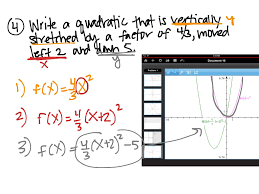 ④ Write a quadratic that is vertically
stretched by a factor of 4/3, moved
left 2 and down 5.
x y
y
1) f(x) = 4/3 x²
2) f(x) = 4/3 (x+2)²
3) f(x) = 4/3 (x+2)² - 5